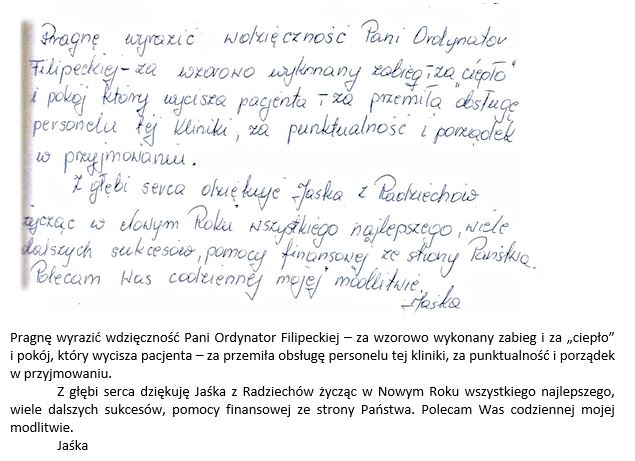 Pragnę wyrazić wdzięczność Pani Ordynator
Filipeckiej – za wzorowo wykonany zabieg i za „ciepło”
i pokój który wycisza pacjenta – za przemiła obsługę
personelu tej kliniki, za punktualność i porządek
w przyjmowaniu.
Z głębi serca dziękuję Jaśka z Radziechów
życząc w Nowym Roku wszystkiego najlepszego, wiele
dalszych sukcesów, pomocy finansowej ze strony Państwa.
Polecam Was codziennej mojej modlitwie.
Jaśka
Pragnę wyrazić wdzięczność Pani Ordynator Filipeckiej – za wzorowo wykonany zabieg i za „ciepło”
i pokój, który wycisza pacjenta – za przemiła obsługę personelu tej kliniki, za punktualność i porządek
w przyjmowaniu.
Z głębi serca dziękuję Jaśka z Radziechów życząc w Nowym Roku wszystkiego najlepszego,
wiele dalszych sukcesów, pomocy finansowej ze strony Państwa. Polecam Was codziennej mojej
modlitwie.
Jaśka